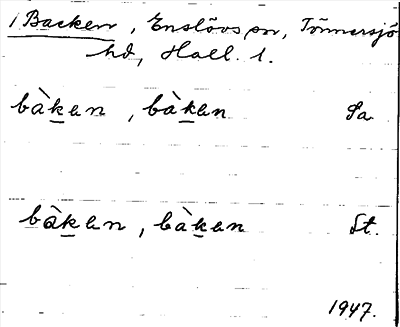 1 Backen, Enslövs sn, Tönnersjö
hd, Hall. l.
bàken, bàken Sa
bàken, bàken St.
1947.